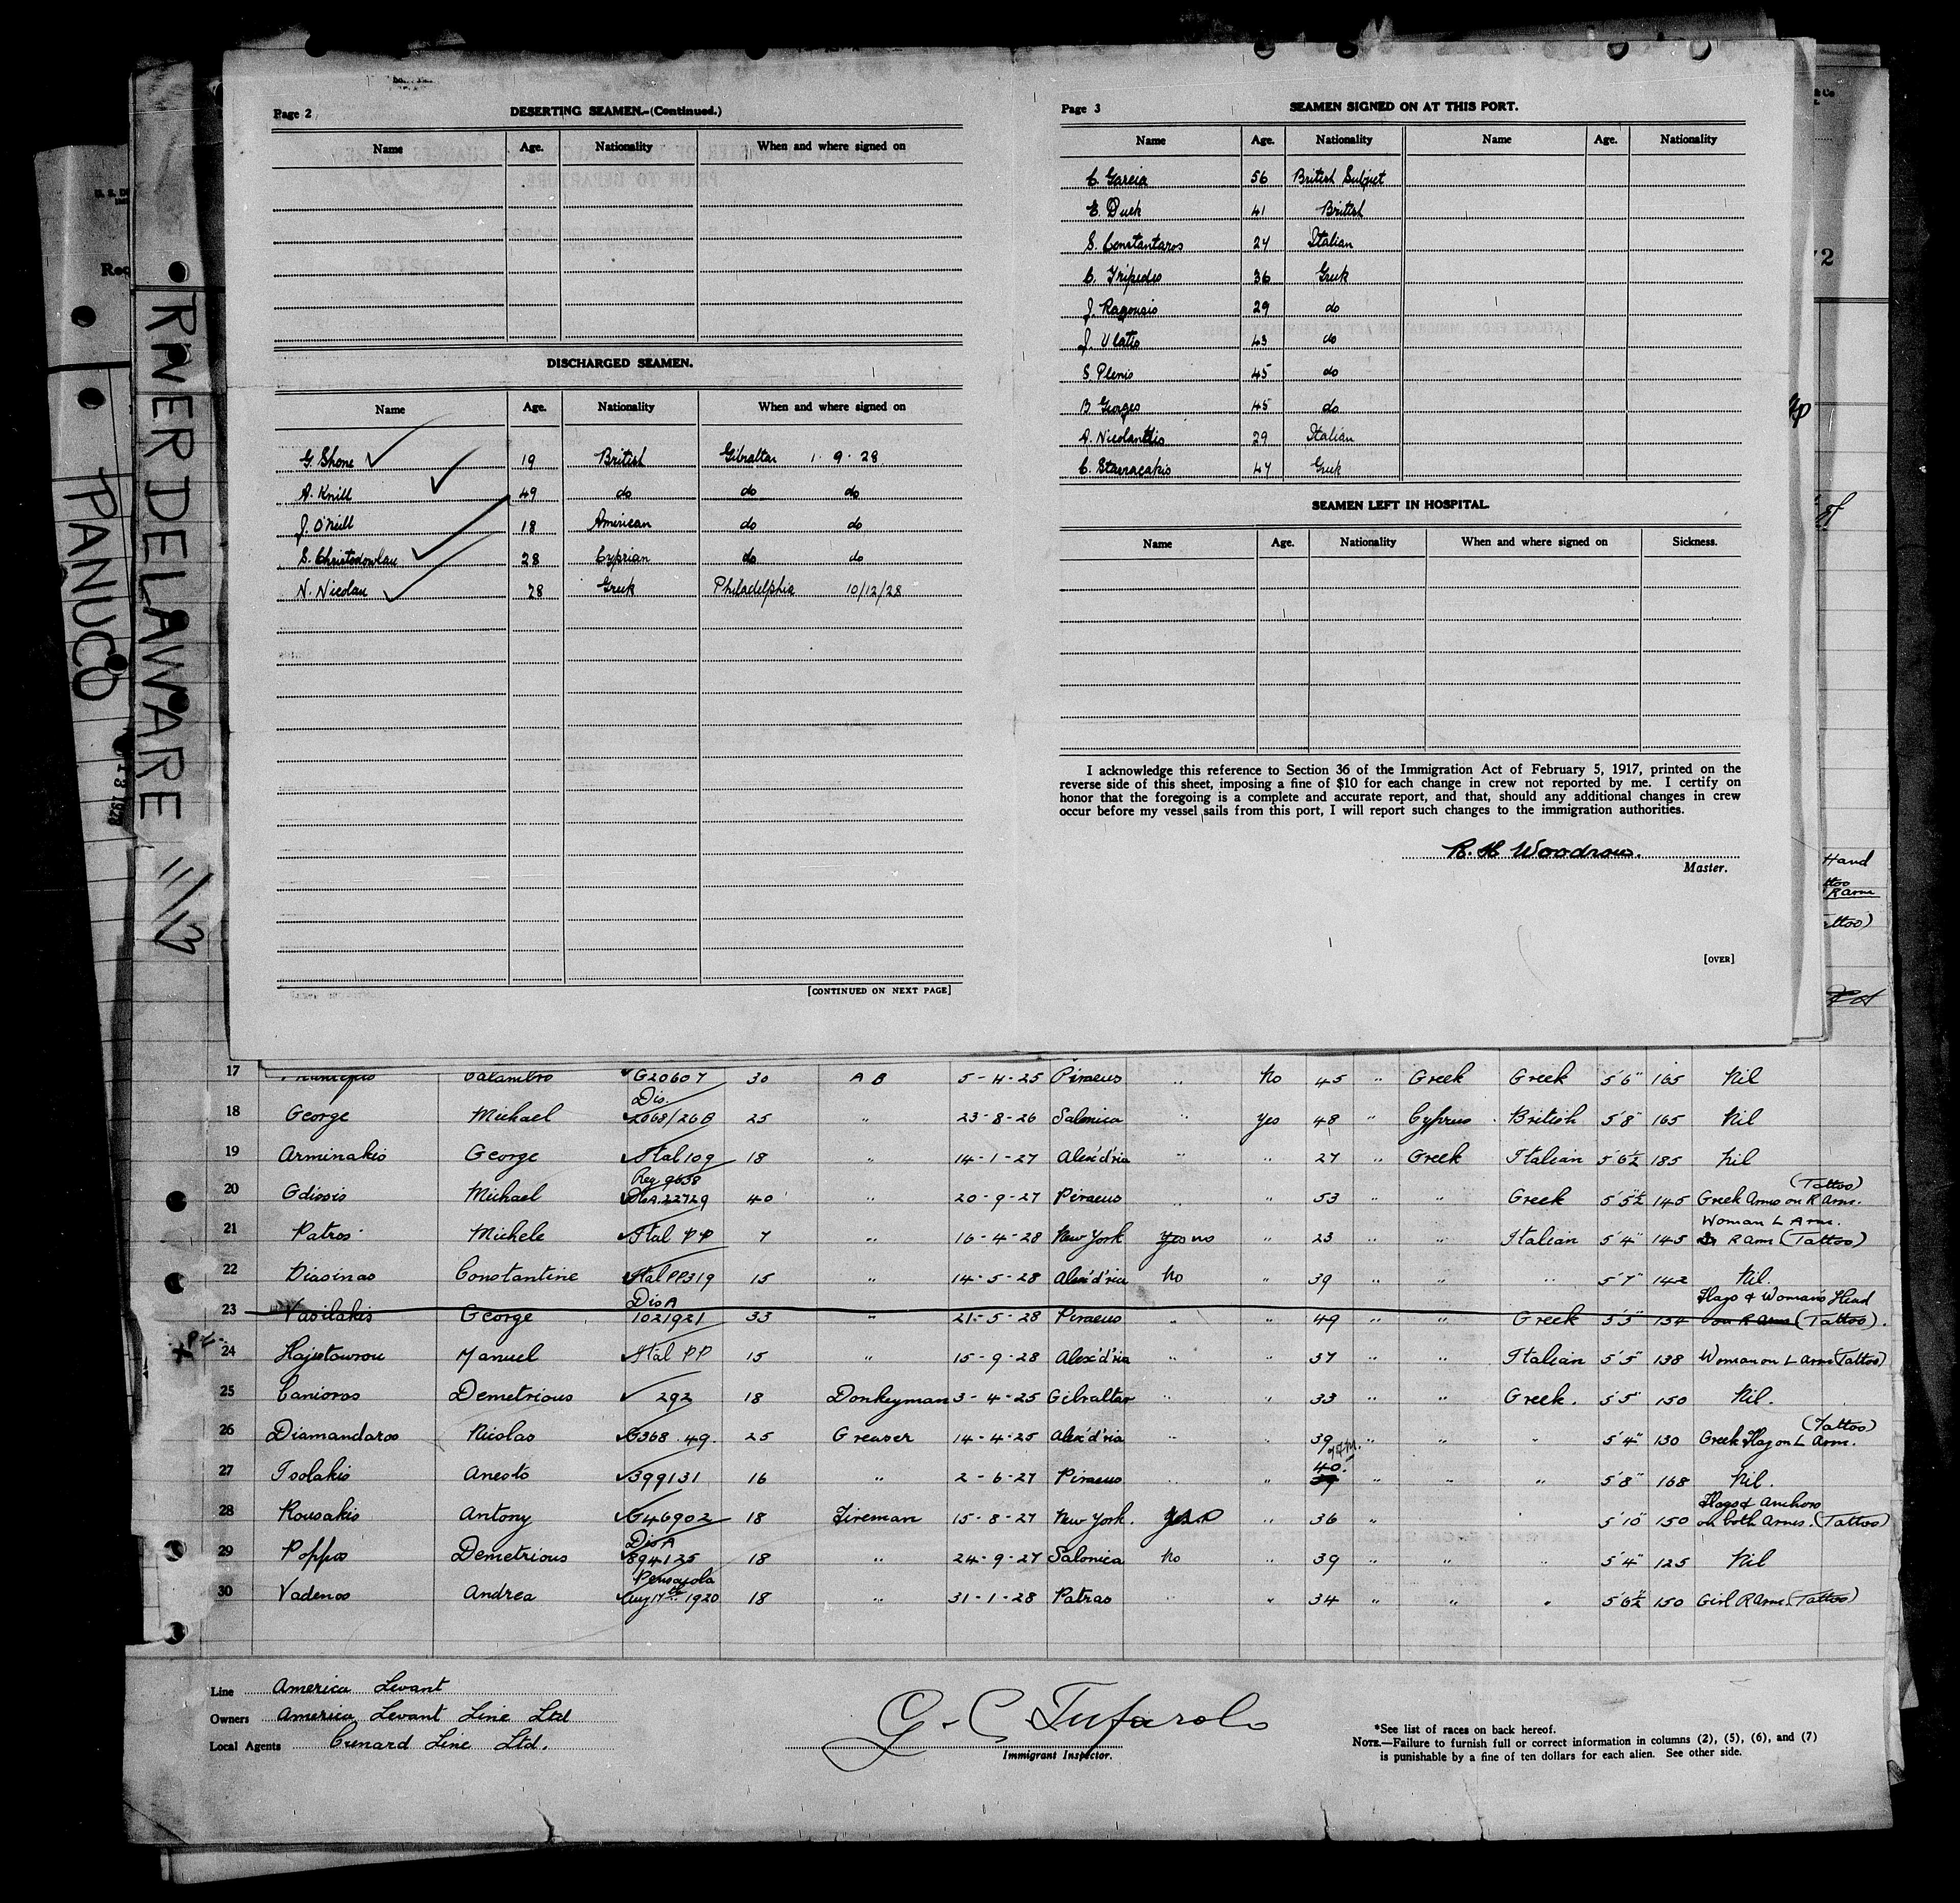 Page 2 DESERTING SEAMEN.-(Continued.)
Name Age. Nationality When and where signed on
DISCHARGED SEAMEN.
Name Age. Nationality When and where signed on
G. Shone 19 British Gibraltar 1 . 9 . 28.
A. Knill 49 do do do
J. O'Neill 18 American do do
S. Christodowlau 28 Cyprian do do
N. Nicolau 28 Greek Philadelphia 10/12/28
[CONTINUED ON NEXT PAGE]
Page 3 SEAMEN SIGNED ON AT THIS PORT.
Name Age. Nationality Name Age. Nationality
C. Garcia 56 British Subject
E. Duck 41 British
S. Constantaros 24 Italian
C. Tripedes 36 Greek
J. Ragousis 29 do
J. Vlatis 43 do
S. Plenis 45 do
B. Georges 45 do
A. Nicolanttis 29 Italian
C. Stavracakis 47 Greek
SEAMEN LEFT IN HOSPITAL.
Name Age. Nationality When and where signed on Sickness.
I acknowledge this reference to Section 36 of the Immigration Act of February 5, 1917, printed on the
reverse side of this sheet, imposing a fine of $10 for each change in crew not reported by me. I certify on
honor that the foregoing is a complete and accurate report, and that, should any additional changes in crew
occur before my vessel sails from this port, I will report such changes to the immigration authorities.
R. H Woodrow.
Master.
[OVER]
RIVER DELAWARE 11/13
PANUCO
13 1928
Hand
R arm
17 Calambro G20607 30 A B 5-4-25 Piraeus " No 45 " Greek Greek 5'6" 165 Nil
Dis.
18 George Michael 2068/26B 25 " 23-8-26 Salonica " Yes 48 " Cyprus British 5'8" 165 Nil
19 Arminakis George Ital 109 18 " 14-1-27 Alex'd'ria " " 27 " Greek Italian 5'6½ 185 Nil
Reg 9658 (Tattoo)
20 Gdissis Michael Dis A 22729 40 " 20-9-27 Piraeus " 53 " " Greek 5'5½" 145 Greek Arms on R Arm.
Woman L Arm.
21 Patros Michele Ital PP 7 " 16-4-28 New York Yes no " 23 " Italian 5'4" 145 R arm (Tattoo)
22 Diasinas Constantine Ital PP319 15 " 14-5-28 Alex'd'ria No " 39 " " " 5'7" 142 Nil.
Dis A Flags & Womans Head
23 Vasilakis George 1021921 33 " 21-5-28 Piraeus " " 49 " " Greek 5'5" 134 on R arm (Tattoo).
24 Hajistowrou Manuel Ital PP 15 " 15-9-28 Alex'd'ria " " 37 " " Italian 5'5" 138 Woman on L Arm (Tattoo)
25 Canioros Demetrious 292 18 Donkeyman 3-4-25 Gibraltar " 33 " " Greek. 5'5" 150 Nil.
(Tattoo)
26 Diamandaros Nicolas G368.49. 25 Greaser 14-4-25 Alex'd'ria " " 39 " " " 5'4" 130 Greek Flag on L Arm.
40.
27 Tsolakis Anesto 399131 16 " 2-6-27 Piraeus " " 39 " " " 5'8" 168 Nil.
Flags & Anchors
28 Rousakis Antony G46902 18 Fireman 15-8-27 New York. Yes " 36 " " " 5'10" 150 on both arms. (Tattoo)
Dis A
29 Poppos Demetrious 894125 18 " 24-9-27 Salonica No " 39 " " " 5'4" 125 Nil
Pensacola
30 Vadenos Andrea Aug 17th 1920 18 " 31-1-28 Patras " " 34 " " " 5'6½" 150 Girl R Arm. (Tattoo)
Line America Levant
Owners America Levant Line Ltd
Local Agents Cunard Line Ltd.
G. C Tufarolo
Immigrant Inspector.
*See list of races on back hereof.
NOTE.—Failure to furnish full or correct information in columns (2), (5), (6), and (7)
is punishable by a fine of ten dollars for each alien. See other side.